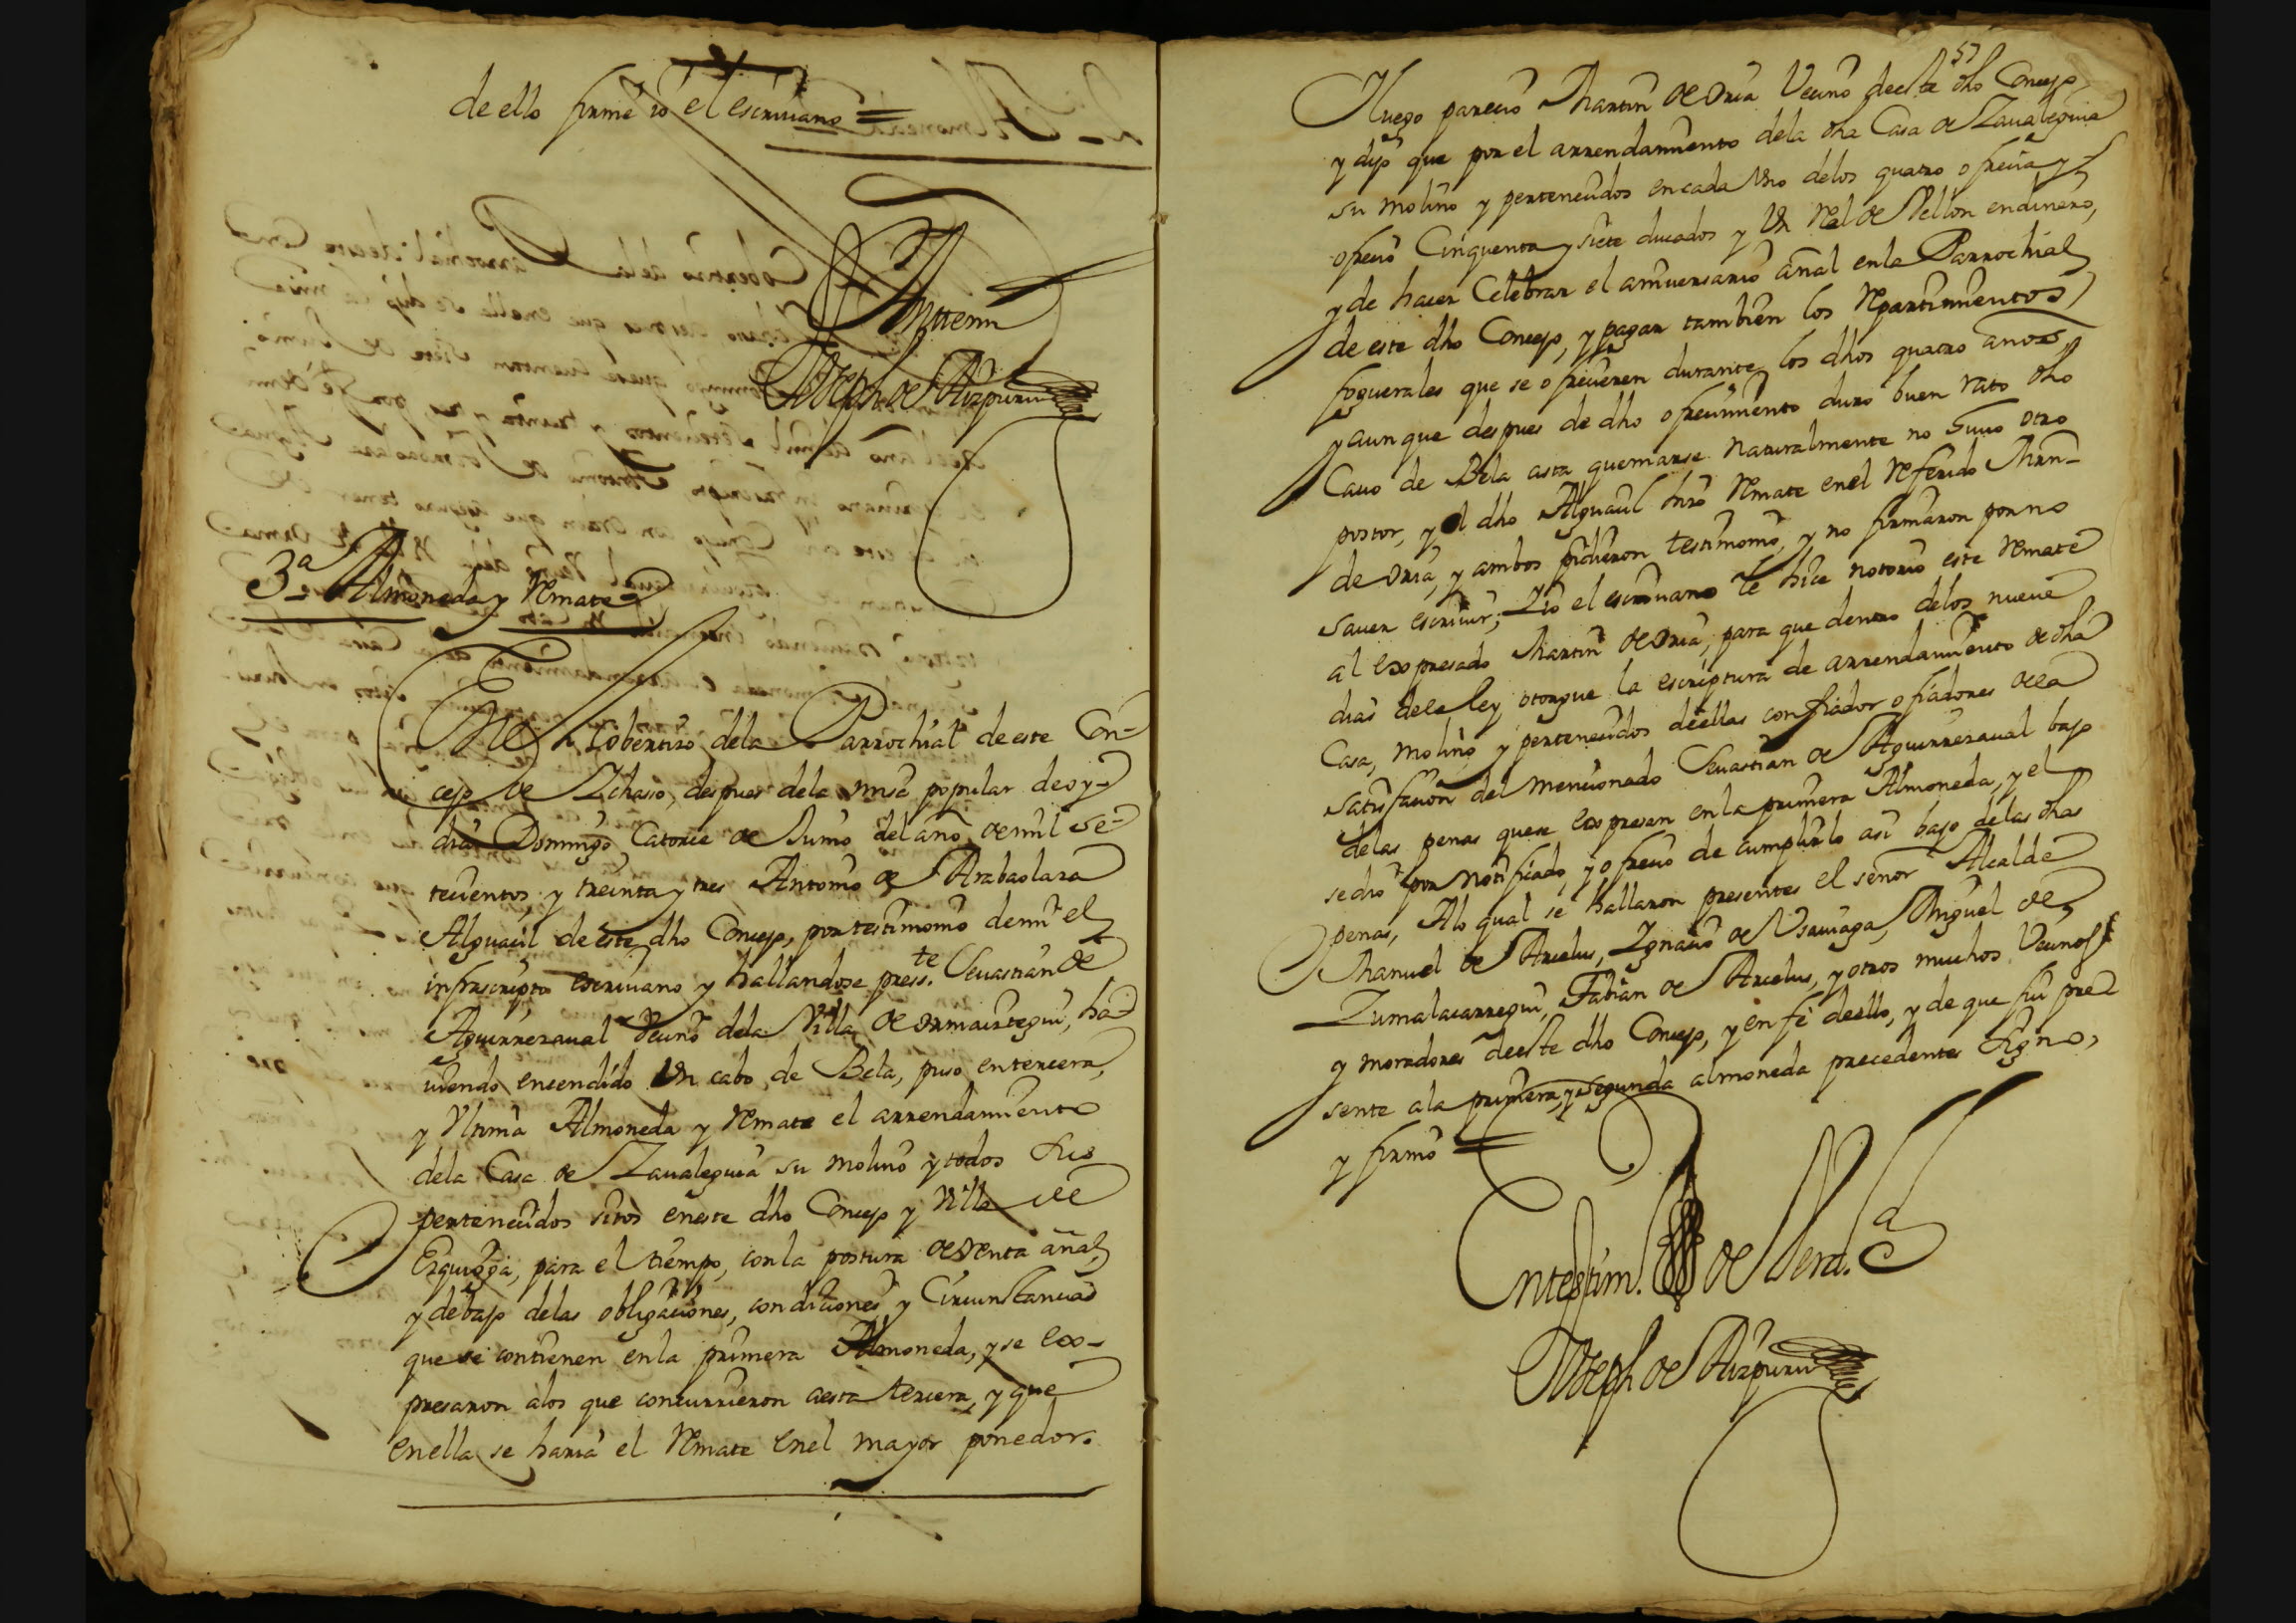 de ello firme io el escriuano =
Ante mi
Joseph de Aizpuru
3.ª Almoneda y Remate
En el Cobertizo dela Parrochial de este Con-
cejo de Ichaso, despues dela misa popular de oy
dia Domingo Catorce de Junio del año de mil se-
tecientos y treinta y tres Antonio de Arabaolaza
Alguacil de este dho Concejo, por testimonio de mi el
infrascripto escriuano y hallandose press.te Seuastian de
Aguirrezaual vecino dela Villa de Ormaiztegui, ha-
uiendo encendido Un cabo de Bela, puso en tercera,
y Vltima Almoneda y Remate el arrendamiento
dela Casa de Zaualeguia su molino y todos sus
pertenecidos sitos en este dho Concejo y Villa de
Ezquioga, para el tiempo, con la postura de renta añal,
y debajo delas obligaciones, condiciones y Circunstancias
que se contienen en la primera Almoneda, y se ex-
presaron alos que concurrieron aesta tercera, y que
en ella se haria el Remate en el mayor ponedor.
57
Y luego parecio Martin de Oria Vecino de este dho Concejo,
y dijo que por el arrendamiento dela dha Casa de Zaualeguia
su molino y pertenecidos en cada Uno delos quatro ofrecia y
ofrecio Cinquenta y siete ducados y Un Real de Vellon en dinero,
y de hacer Celebrar el aniuersario añal en la Parrochial
de este dho Concejo, y pagar tambien los Repartimientos
foguerales que se ofrecieren durante los dhos quatro años,
y aunque despues de dho ofrecimiento duro buen rato dho
Cauo de Bela asta quemarse naturalmente no huuo otro
postor, y el dho Alguacil hizo Remate en el Referido Martin
de Oria, y ambos pidieron testimonio, y no firmaron por no
sauer escriuir; Y io el escriuano le hice notorio este Remate
al expresado Martin de Oria, para que dentro delos nueue
dias dela ley otorgue la escriptura de arrendamiento de dha
Casa, molino y pertenecidos de ellas con fiador o fiadores de a
satisfacion del mencionado Seuastian de Aguirrezaual bajo
delas penas que se expresan en la primera Almoneda, y el
se dio por notificado, y ofrecio de cumplirlo asi bajo delas dhas
penas, Alo qual se hallaron presentes el señor Alcalde
Manuel de Arcelus, Ignacio de Vsauiaga, Miguel de
Zumalacarregui, Fabian de Arcelus, y otros muchos Vecinos
y moradores de este dho Concejo, y en fe de ello, y de que fui pre
sente ala primera, y segunda almoneda precedentes Signo,
y firmo =
En testim.o de Verd.
Joseph de Aizpuru